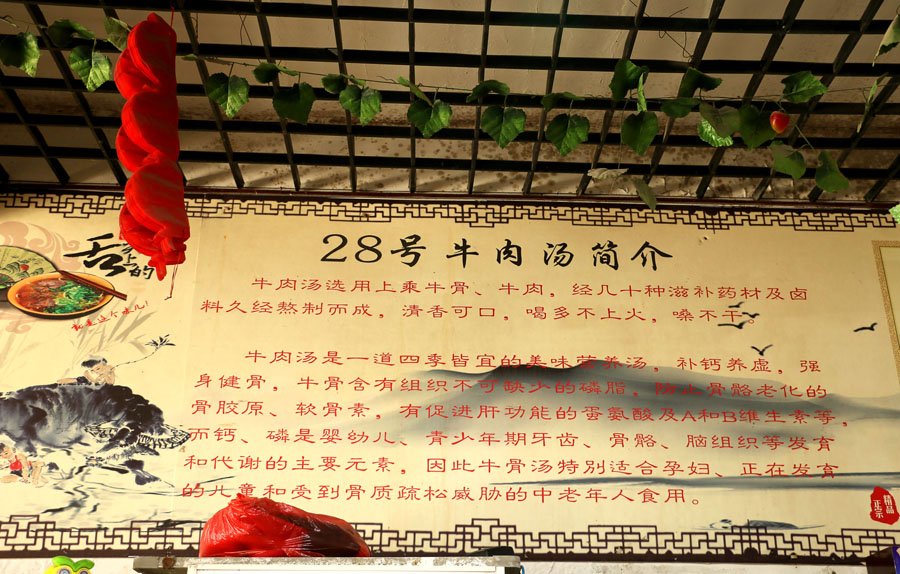 28号牛肉汤简介
舌尖上的
就是这个味儿!
牛肉汤选用上乘牛骨、牛肉,经几十种滋补药材及卤
料久经熬制而成,清香可口,喝多不上火,嗓不干。
牛肉汤是一道四季皆宜的美味营养汤,补钙养虚,强
身健骨,牛骨含有组织不可缺少的磷脂,防止骨骼老化的
骨胶原、软骨素,有促进肝功能的蛋氨酸及A和B维生素等,
而钙、磷是婴幼儿、青少年期牙齿、骨骼、脑组织等发育
和代谢的主要元素,因此牛骨汤特别适合孕妇、正在发育
的儿童和受到骨质疏松威胁的中老年人食用。
精品
正宗